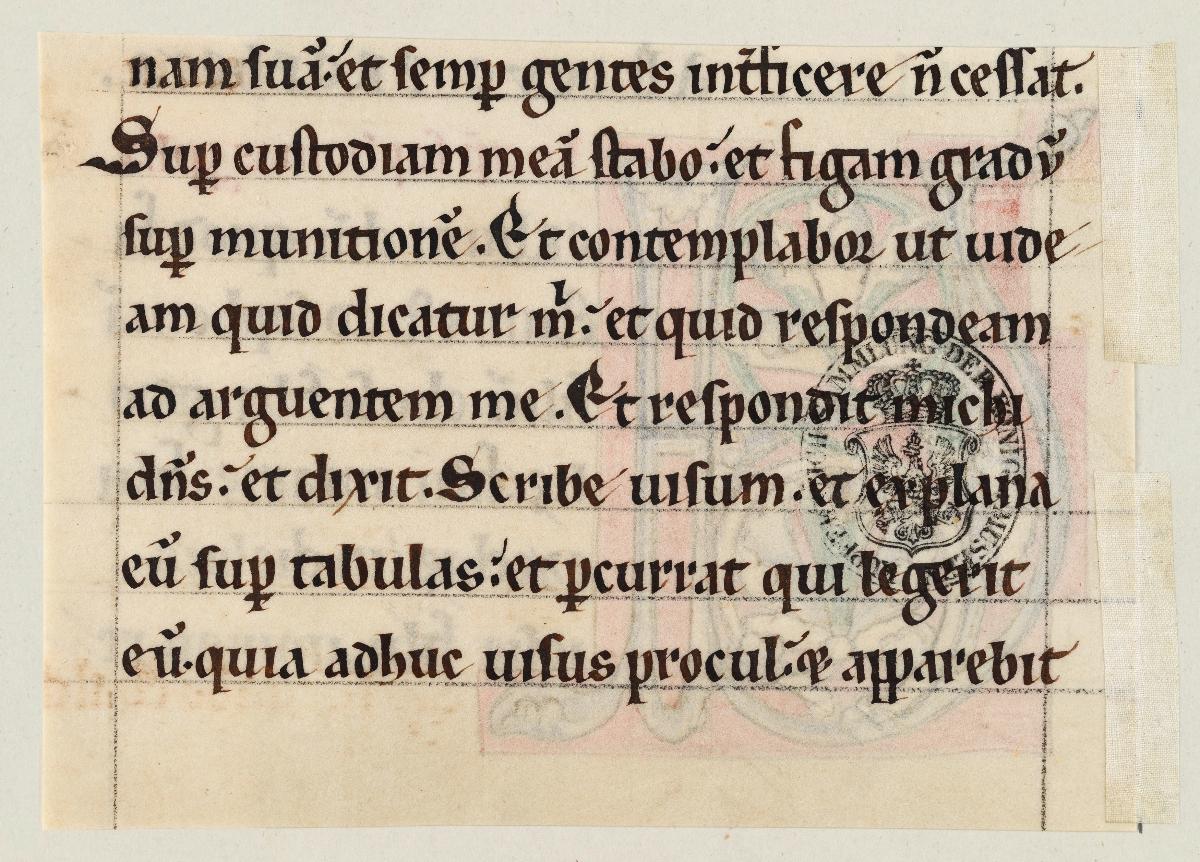 nam ſuã·et semꝑ gentes int̃ficere ñ ceſſat.
Suꝑ cuſtodiam meã ſtabo·et figam gradũ
ſuꝑ munitionẽ. Et contemplaboꝛ ut uide
am quid dicatur m̊·et quid reſpondeam
ad arguentem me. Et reſpondit michi
dñs·et dixit. Scribe uiſum. et explana
eũ ſuꝑ tabulas·et ꝑcurrat qui legerit
eũ·quia adhuc uiſus procul·⁊ apparebit